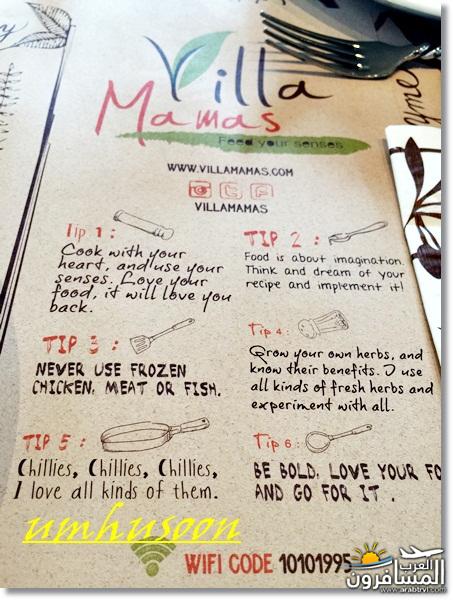 Villa
Mamas
Feed your senses
WWW.VILLAMAMAS.COM
VILLAMAMAS
Tip 1 :
Cook with your
heart, and use your
senses. Love your
food, it will love you
back.
TIP 2 :
Food is about imagination.
Think and dream of your
recipe and implement it!
TIP 3 :
NEVER USE FROZEN
CHICKEN, MEAT OR FISH.
Tip 4 :
Grow your own herbs, and
know their benefits. I use
all kinds of fresh herbs and
experiment with all.
TIP 5 :
Chillies, Chillies, Chillies,
I love all kinds of them.
Tip 6 :
BE BOLD, LOVE YOUR FO
AND GO FOR IT .
umhusoon
WIFI CODE 10101995
العرب
المسافرون
www.arabtrvl.com